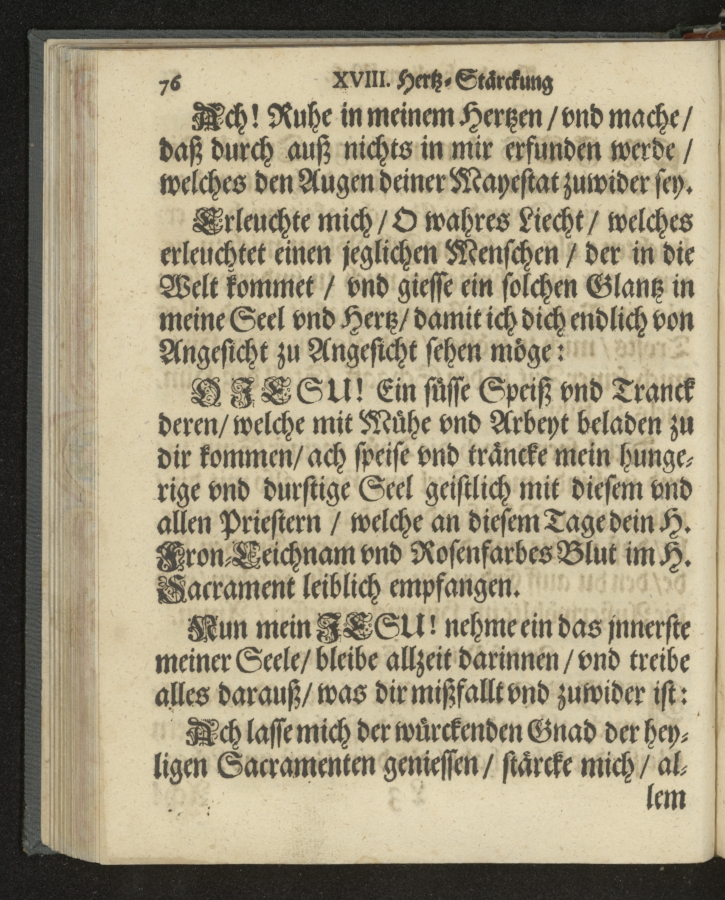 76 XVIII. Hertz-Stärckung
Ach! Ruhe in meinem Hertzen / vnd mache /
daß durch auß nichts in mir erfunden werde /
welches den Augen deiner Mayestat zuwider sey.
Erleuchte mich / O wahres Liecht / welches
erleuchtet einen jeglichen Menschen / der in die
Welt kommet / vnd giesse ein solchen Glantz in
meine Seel vnd Hertz / damit ich dich endlich von
Angesicht zu Angesicht sehen möge:
O JESU! Ein süsse Speiß vnd Tranck
deren / welche mit Mühe vnd Arbeyt beladen zu
dir kommen / ach speise vnd träncke mein hunge-
rige vnd durstige Seel geistlich mit diesem vnd
allen Priestern / welche an diesem Tage dein H.
Fron-Leichnam vnd Rosenfarbes Blut im H.
Sacrament leiblich empfangen.
Nun mein JESU! nehme ein das jnnerste
meiner Seele / bleibe allzeit darinnen / vnd treibe
alles darauß / was dir mißfallt vnd zuwider ist:
Ach lasse mich der würckenden Gnad der hey-
ligen Sacramenten geniessen / stärcke mich / al-
lem